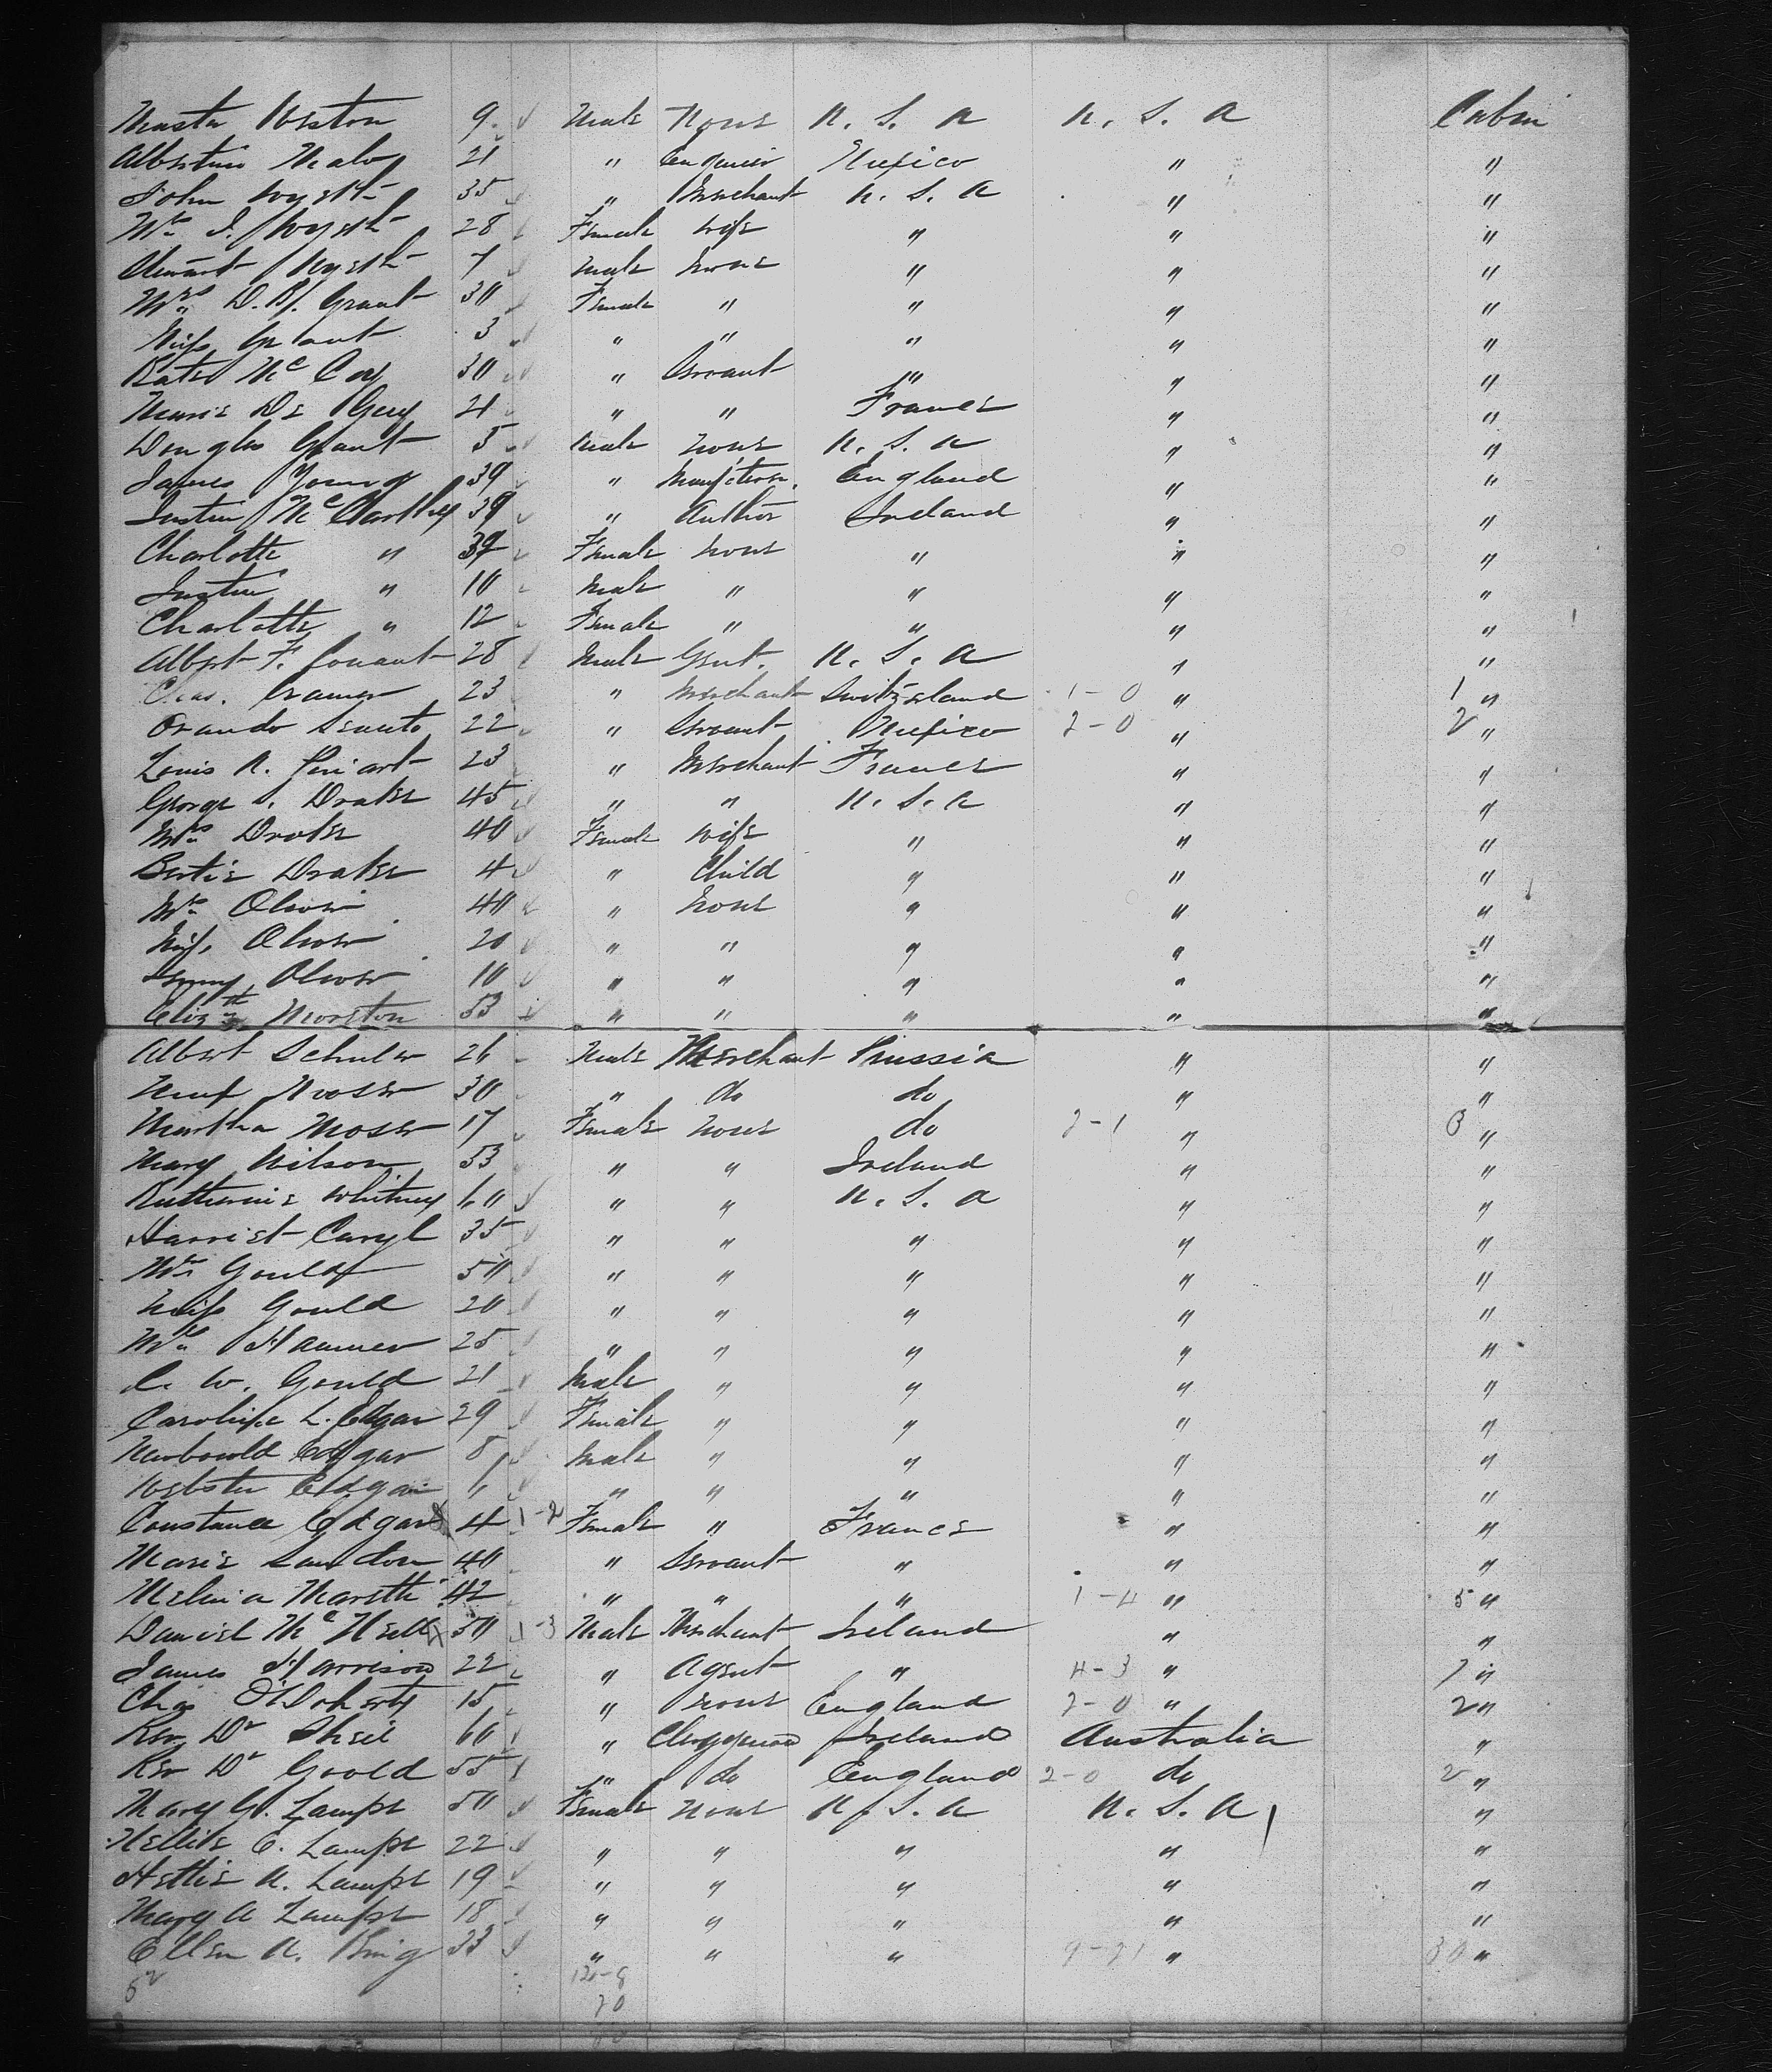 Master Weston 9 Male None U. S. A U. S. A Cabin
Albertino Malo 21 " Engineer Mexico " "
John Wyeth 35 " Merchant U. S. A " "
Mrs J. Wyeth 28 Female wife " " "
Stuart Wyeth 7 Male None " " "
Mrs D. R. Grant 30 Female " " " "
Miss Grant 3 " " " " "
Kate Mc Coy 30 " Servant " " "
Marie De Gey 21 " " France " "
Douglas Grant 5 Male None U. S. A " "
James Young 39 " England " "
Justin Mc Carthy 39 " Author Ireland " "
Charlotte " 39 Female None " " "
Justin " 10 Male " " " "
Charlotte " 12 Female " " " "
Albert F. Conant 28 Male Gent. U. S. A " "
Chas. Cramer 23 " Merchant Switzerland 1-0 " 1 "
22 " Servant Mexico 2-0 " 2 "
Louis A. 23 " Merchant France " "
George S. Drake 45 " " U. S. A " "
Mrs Drake 40 Female wife " " "
Bertie Drake 4 " Child " " "
Mrs Oliver 40 " None " " "
Miss Oliver 20 " " " " "
Oliver 10 " " " " "
Elizth Morston 53 " " " " "
Albert Schuler 26 Male Merchant Prussia " "
Moser 30 " do do " "
Martha Moser 17 Female None do 2-1 " 3 "
Mary Wilson 53 " " Ireland " "
Katherine Whitney 60 " " U. S. A " "
Harriet Caryl 35 " " " " "
Mrs Gould 50 " " " " "
Miss Gould 20 " " " " "
Mrs Hammer 25 " " " " "
C. W. Gould 21 Male " " " "
Caroline L. Edgar 29 Female " " " "
Newbould Edgar 8 Male " " " "
Webster Edgar 6 " " " " "
Constance Edgar 4 1-2 Female " France " "
Marie Landon 40 " Servant " " "
Melinia Maretti 42 " " " 1-4 " 5 "
Daniel Mc Neill 50 1-3 Male Merchant Ireland " "
James Harrison 22 " Agent " 4-3 " 7 "
Chas O'Doherty 15 " None England 2-0 " 2 "
Rev Dr Sheil 60 " Clergyman Ireland Australia "
Rev Dr Goold 55 " do England 2-0 do 2 "
Mary G. Lampe 50 Female None U. S. A U. S. A "
Nellie C. Lampe 22 " " " " "
Hettie A. Lampe 19 " " " " "
Mary A Lampe 18 " " " " "
Ellen A. King 33 " " " 9-21 " 30 "
52 12-8
20